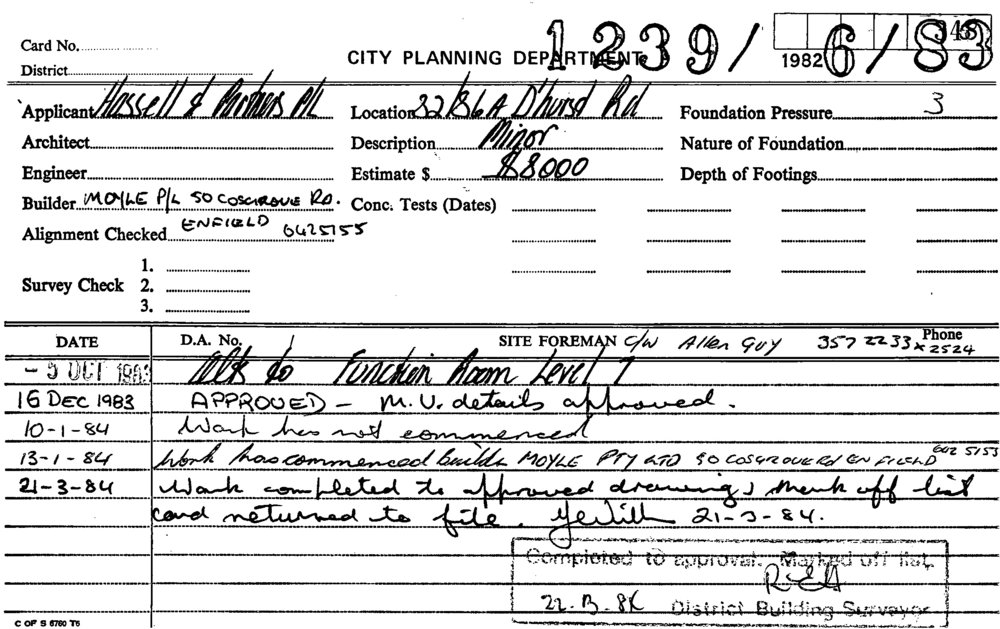 Card No.
CITY PLANNING DEPARTMENT 1239/6/83
1982
District
Applicant Hassell & Partners P/L Location 82/86A D'hurst Rd Foundation Pressure 3
Architect Description Minor Nature of Foundation
Engineer Estimate $ $8000 Depth of Footings
Builder MOYLE P/L 50 COSGROVE RD. Conc. Tests (Dates)
ENFIELD 6425155
Alignment Checked
1.
Survey Check 2.
3.
DATE D.A. No. SITE FOREMAN C/W Allen Guy 357 2233 x 2524 Phone
OCT 1983 Alts to Function Room Level 7
16 DEC 1983 APPROVED – M.V. details approved.
10-1-84 Work has not commenced
13-1-84 Work has commenced builder MOYLE PTY LTD 50 COSGROVE Rd ENFIELD 642 5153
21-3-84 Work completed to approved drawings mark off list
card returned to file. 21-3-84.
Completed to approval. Marked off list.
District Building Surveyor
C OF S 6760 T6